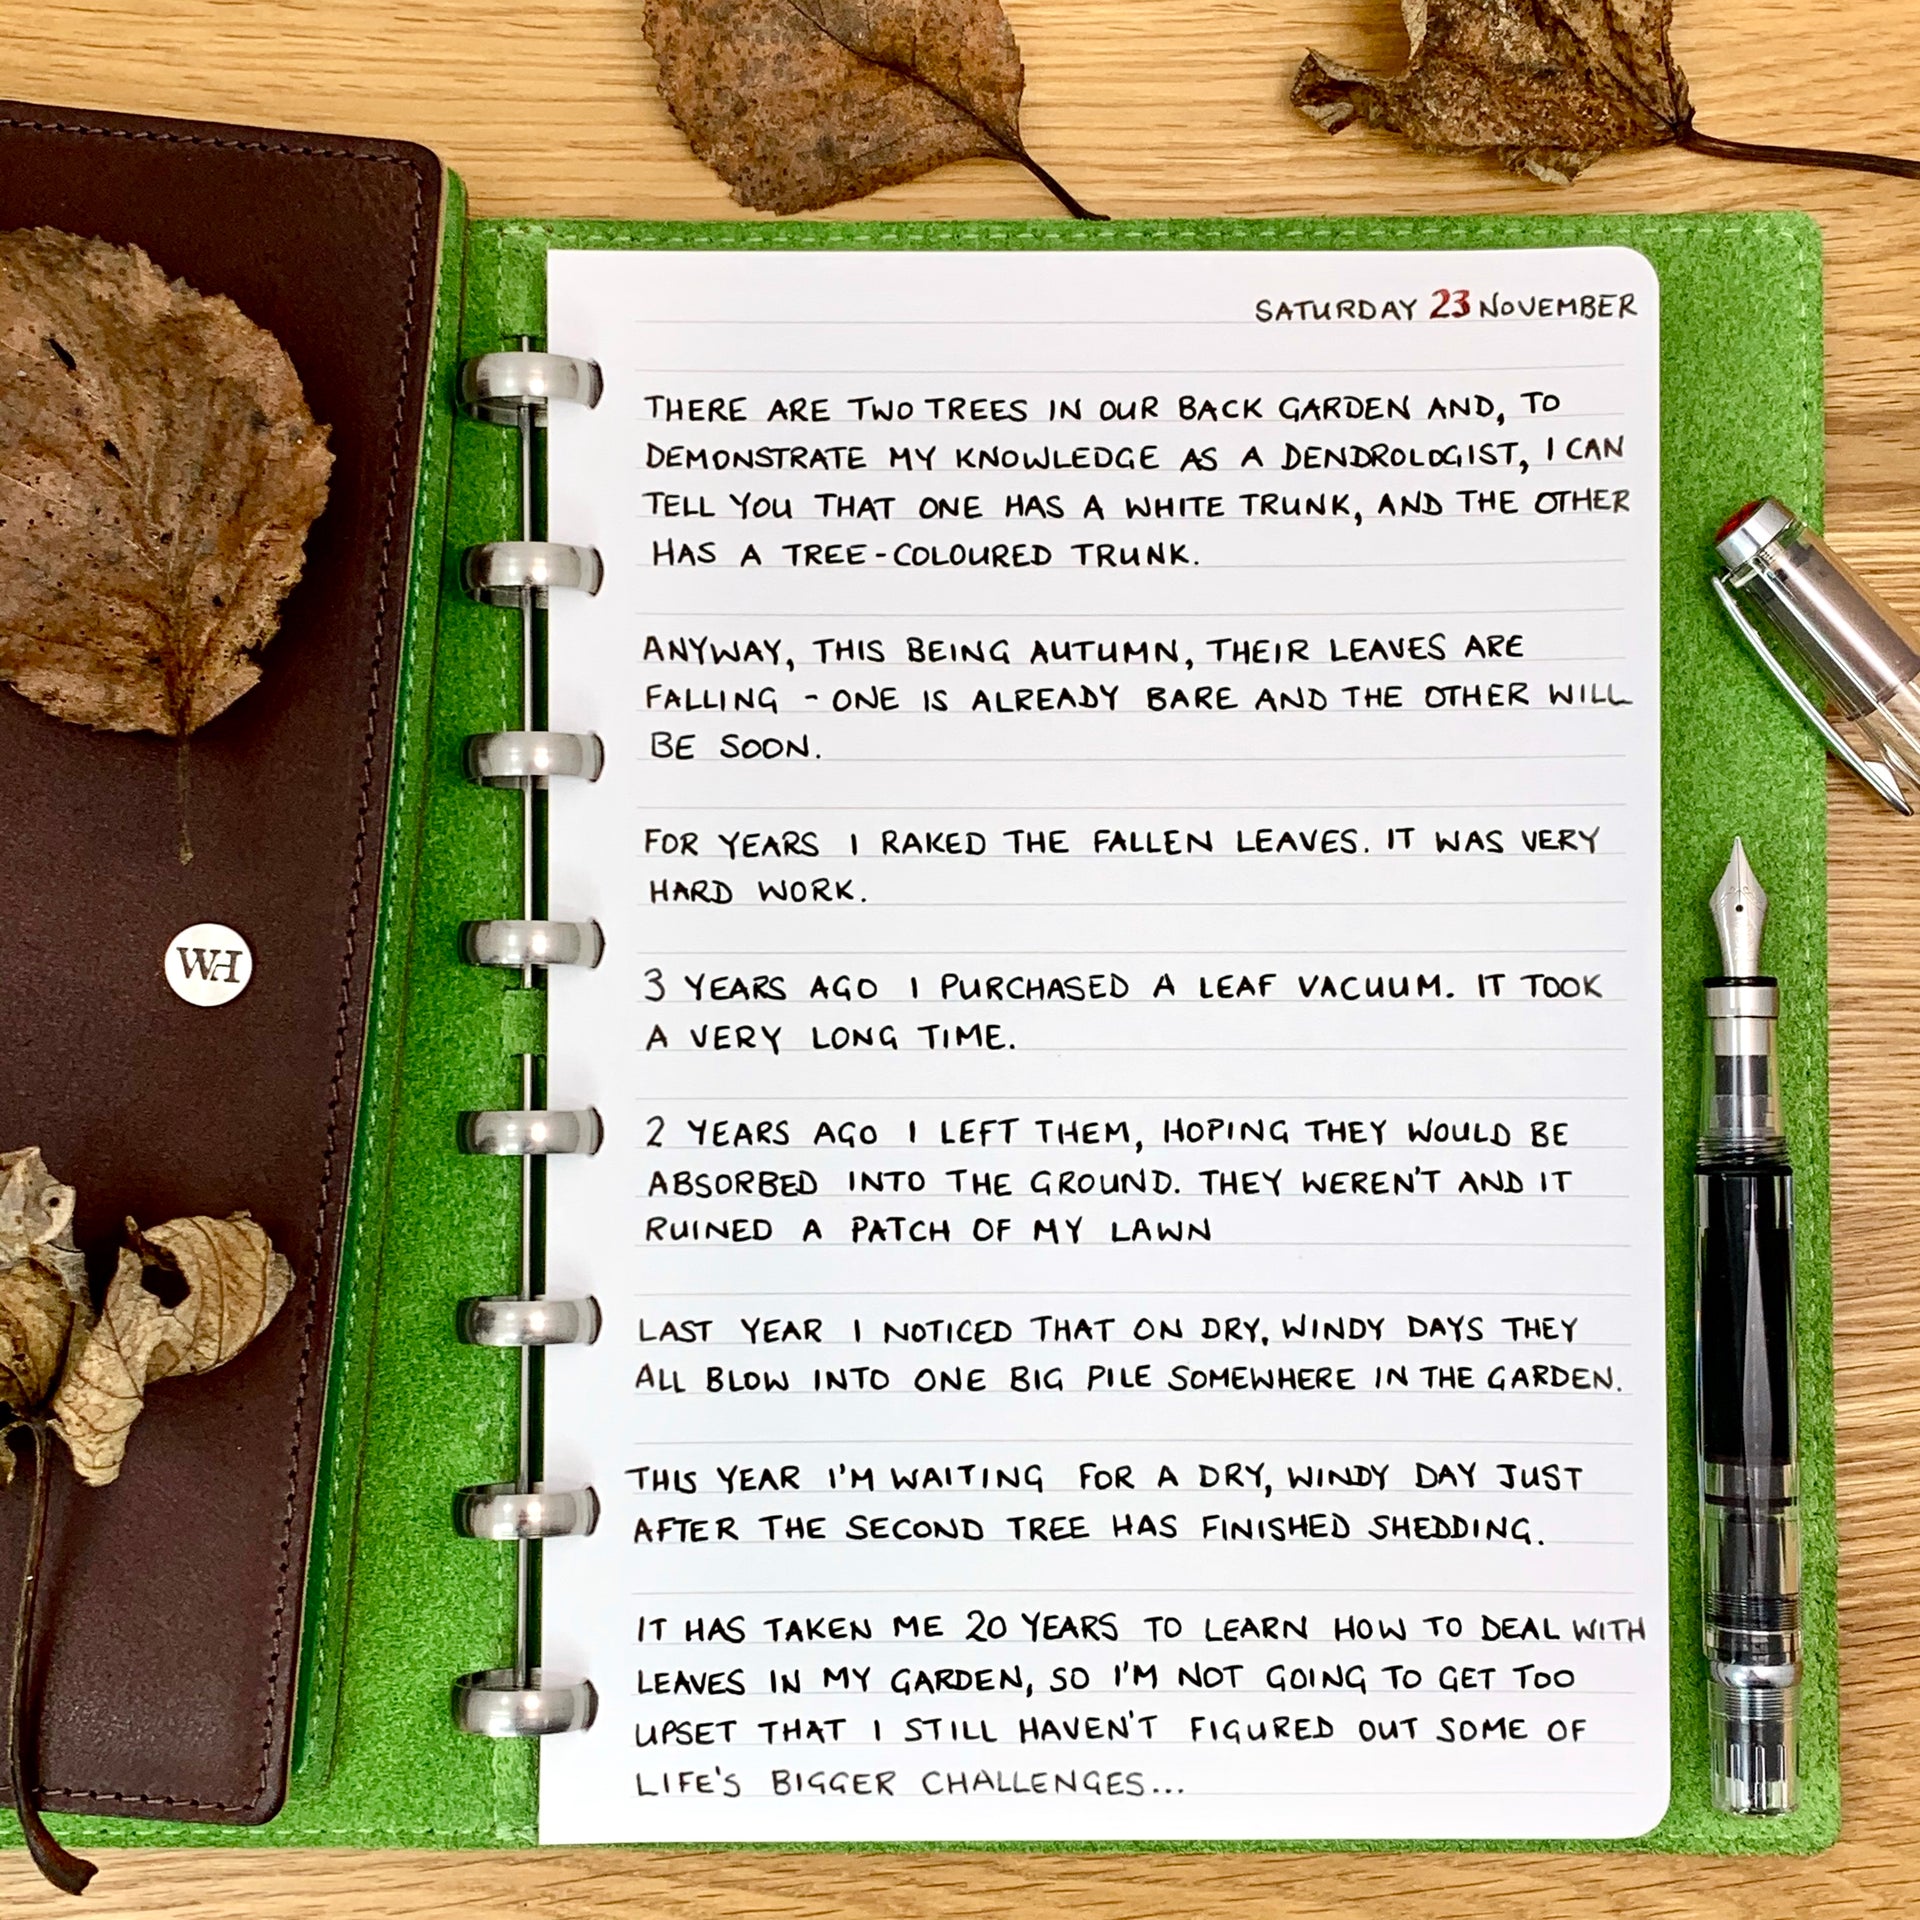 SATURDAY 23 NOVEMBER
THERE ARE TWO TREES IN OUR BACK GARDEN AND, TO
DEMONSTRATE MY KNOWLEDGE AS A DENDROLOGIST, I CAN
TELL YOU THAT ONE HAS A WHITE TRUNK, AND THE OTHER
HAS A TREE-COLOURED TRUNK.
ANYWAY, THIS BEING AUTUMN, THEIR LEAVES ARE
FALLING - ONE IS ALREADY BARE AND THE OTHER WILL
BE SOON.
FOR YEARS I RAKED THE FALLEN LEAVES. IT WAS VERY
HARD WORK.
3 YEARS AGO I PURCHASED A LEAF VACUUM. IT TOOK
A VERY LONG TIME.
2 YEARS AGO I LEFT THEM, HOPING THEY WOULD BE
ABSORBED INTO THE GROUND. THEY WEREN'T AND IT
RUINED A PATCH OF MY LAWN
LAST YEAR I NOTICED THAT ON DRY, WINDY DAYS THEY
ALL BLOW INTO ONE BIG PILE SOMEWHERE IN THE GARDEN.
THIS YEAR I'M WAITING FOR A DRY, WINDY DAY JUST
AFTER THE SECOND TREE HAS FINISHED SHEDDING.
IT HAS TAKEN ME 20 YEARS TO LEARN HOW TO DEAL WITH
LEAVES IN MY GARDEN, SO I'M NOT GOING TO GET TOO
UPSET THAT I STILL HAVEN'T FIGURED OUT SOME OF
LIFE'S BIGGER CHALLENGES...
WH